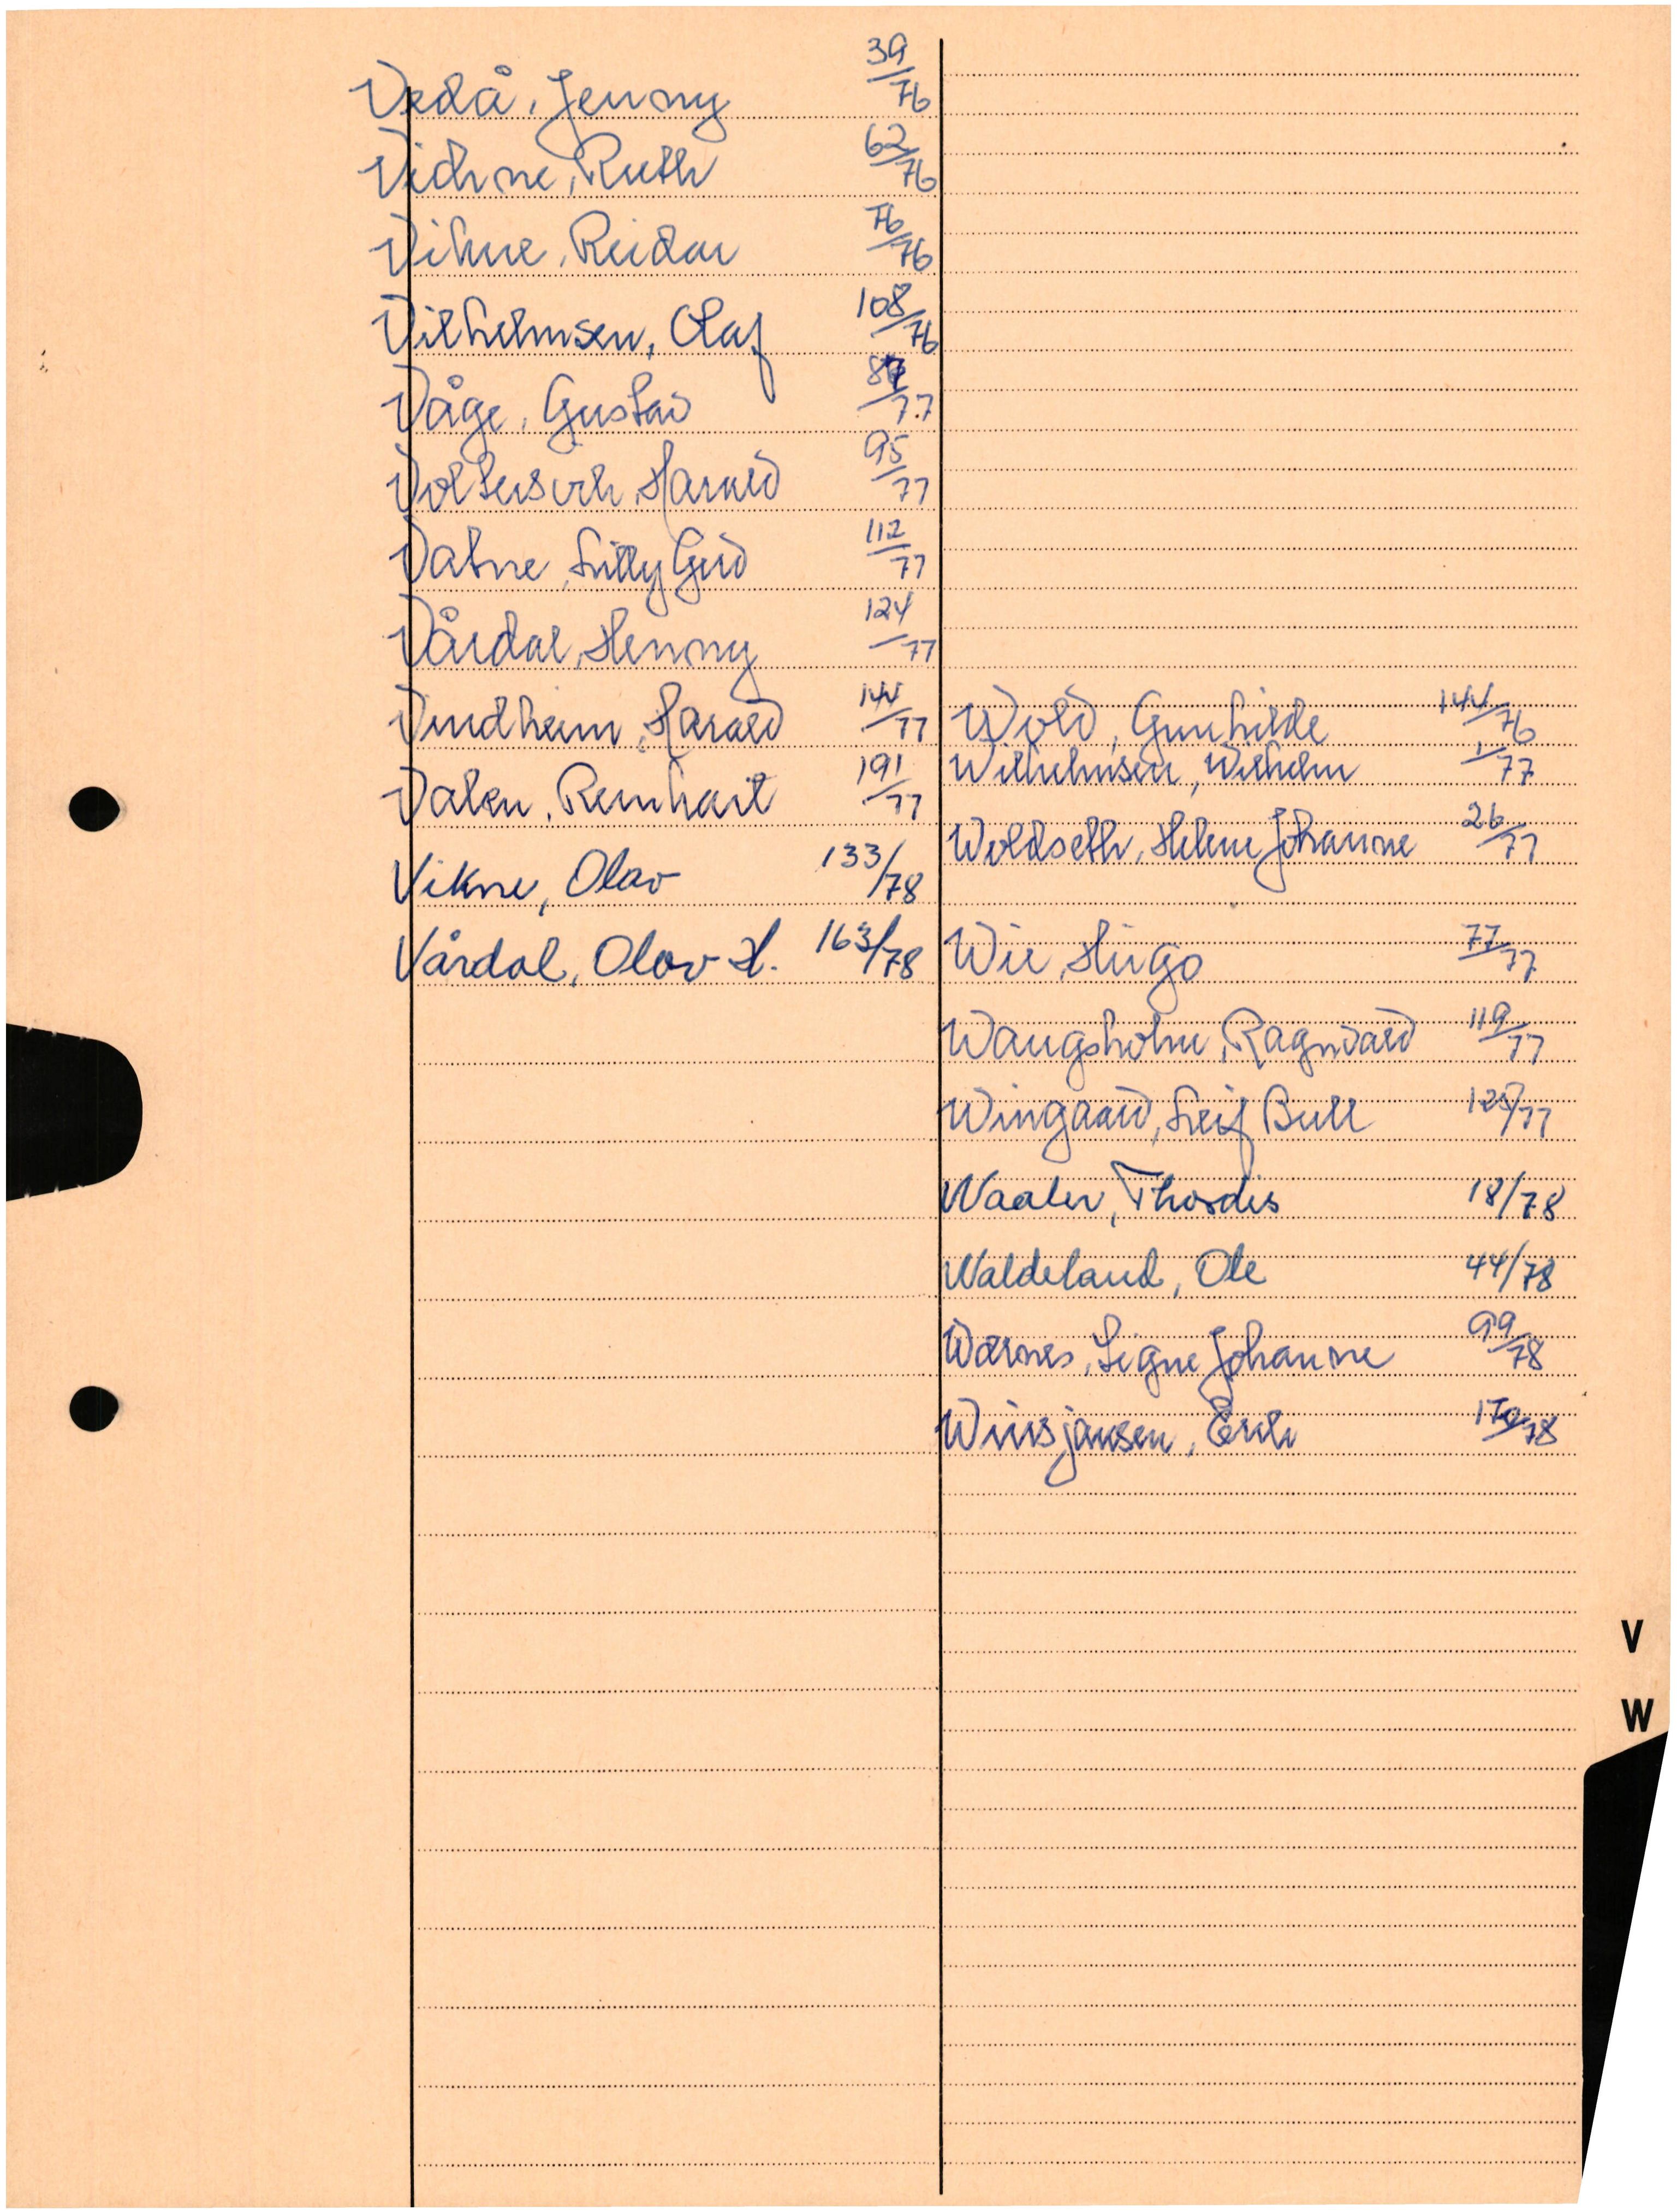 Vedå, Jenny 39/76
Vidhne, Ruth 62/76
Vikne, Reidar 76/76
Vilhelmsen, Olaf 108/76
Våge, Gustav 87/77
Harald 95/77
Vatne, Litty Gud 112/77
Vårdal, Henny 124/77
Vindheim, Harald 144/77
Valen, Reinhart 191/77
Vikne, Olav 133/78
Vårdal, Olav H. 163/78
Wold, Gunhilde 144/76
Wilhelmsen, Wilhelm 1/77
Woldseth, Helene Johanne 26/77
Wie, Hugo 77/77
Waugsholm, Ragnvald 119/77
Wingaard, Leif Bull 125/77
Waaler, Thordis 18/78
Waldeland, Ole 44/78
Wærnes, Signe Johanne 99/78
Erik 170/78
V
W